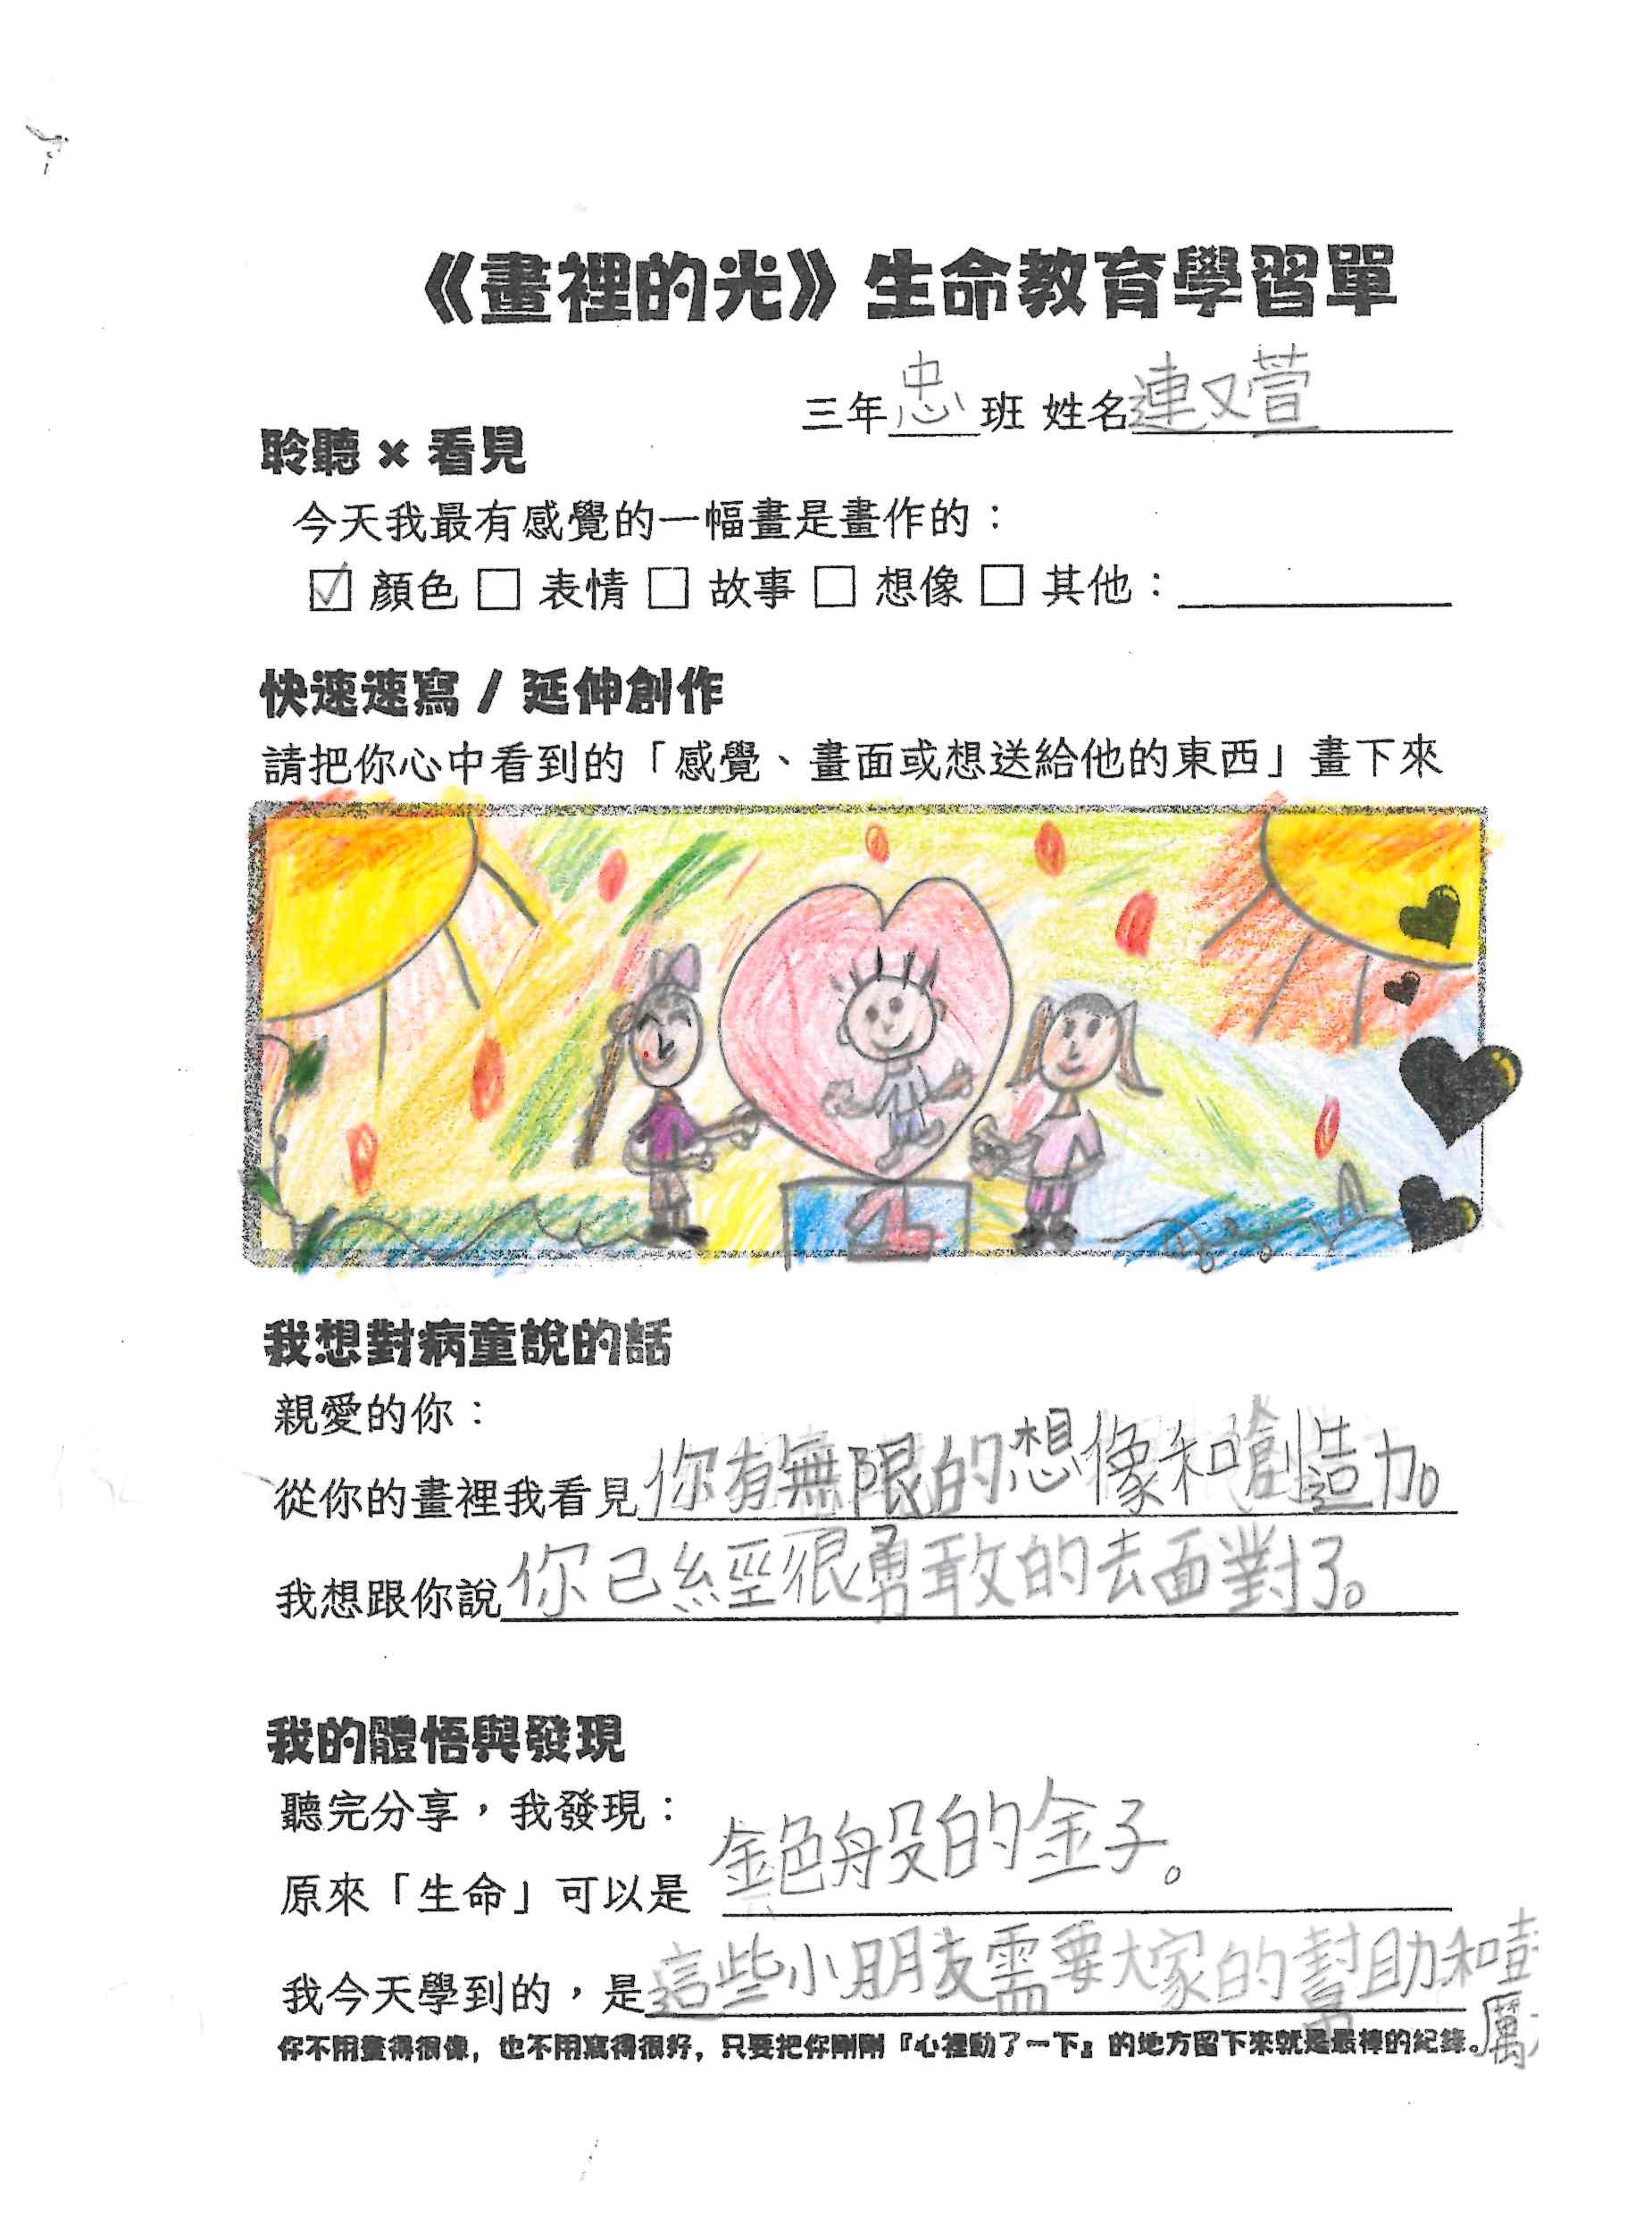 《畫裡的光》生命教育學習單
三年忠班 姓名連又萱
聆聽 × 看見
今天我最有感覺的一幅畫是畫作的：
☑ 顏色 □ 表情 □ 故事 □ 想像 □ 其他：
快速速寫 / 延伸創作
請把你心中看到的「感覺、畫面或想送給他的東西」畫下來
我想對病童說的話
親愛的你：
從你的畫裡我看見你有無限的想像和創造力。
我想跟你說你已經很勇敢的去面對了。
我的體悟與發現
聽完分享，我發現：
原來「生命」可以是 般的金子。
我今天學到的，是這些小朋友需要大家的幫助和
你不用畫得很像，也不用寫得很好，只要把你剛剛『心裡動了一下』的地方留下來就是最棒的紀錄。